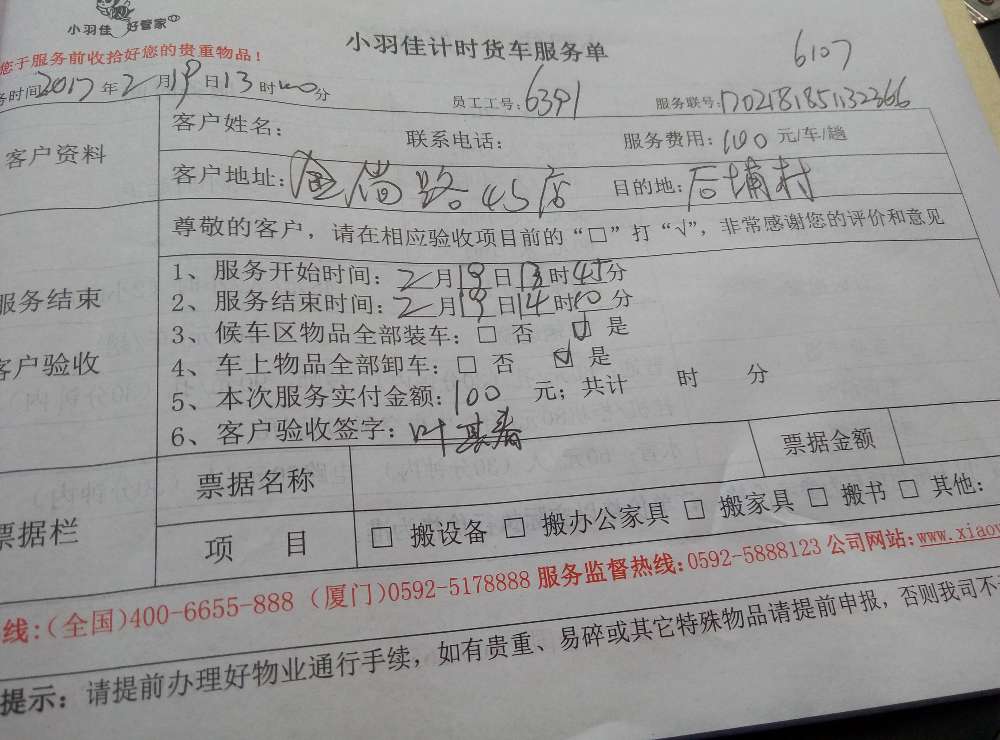 小羽佳 好管家
小羽佳计时货车服务单
6107
您于服务前收拾好您的贵重物品！
务时间2017年2月19日13时40分 员工工号：6391 服务联号：
客户资料
客户姓名： 联系电话： 服务费用：100元/车/趟
客户地址： 路45店 目的地：后埔村
尊敬的客户，请在相应验收项目前的“□”打“√”，非常感谢您的评价和意见
服务结束
客户验收
1、服务开始时间：2月19日13时45分
2、服务结束时间：2月19日14时10分
3、候车区物品全部装车：□ 否 ☑ 是
4、车上物品全部卸车：□ 否 ☑ 是
5、本次服务实付金额：100 元；共计 时 分
6、客户验收签字：叶其春
票据栏
票据名称 票据金额
项 目 □ 搬设备 □ 搬办公家具 □ 搬家具 □ 搬书 □ 其他：
线：(全国)400-6655-888 (厦门)0592-5178888 服务监督热线：0592-5888123 公司网站：www.xiaoy
提示：请提前办理好物业通行手续，如有贵重、易碎或其它特殊物品请提前申报，否则我司不